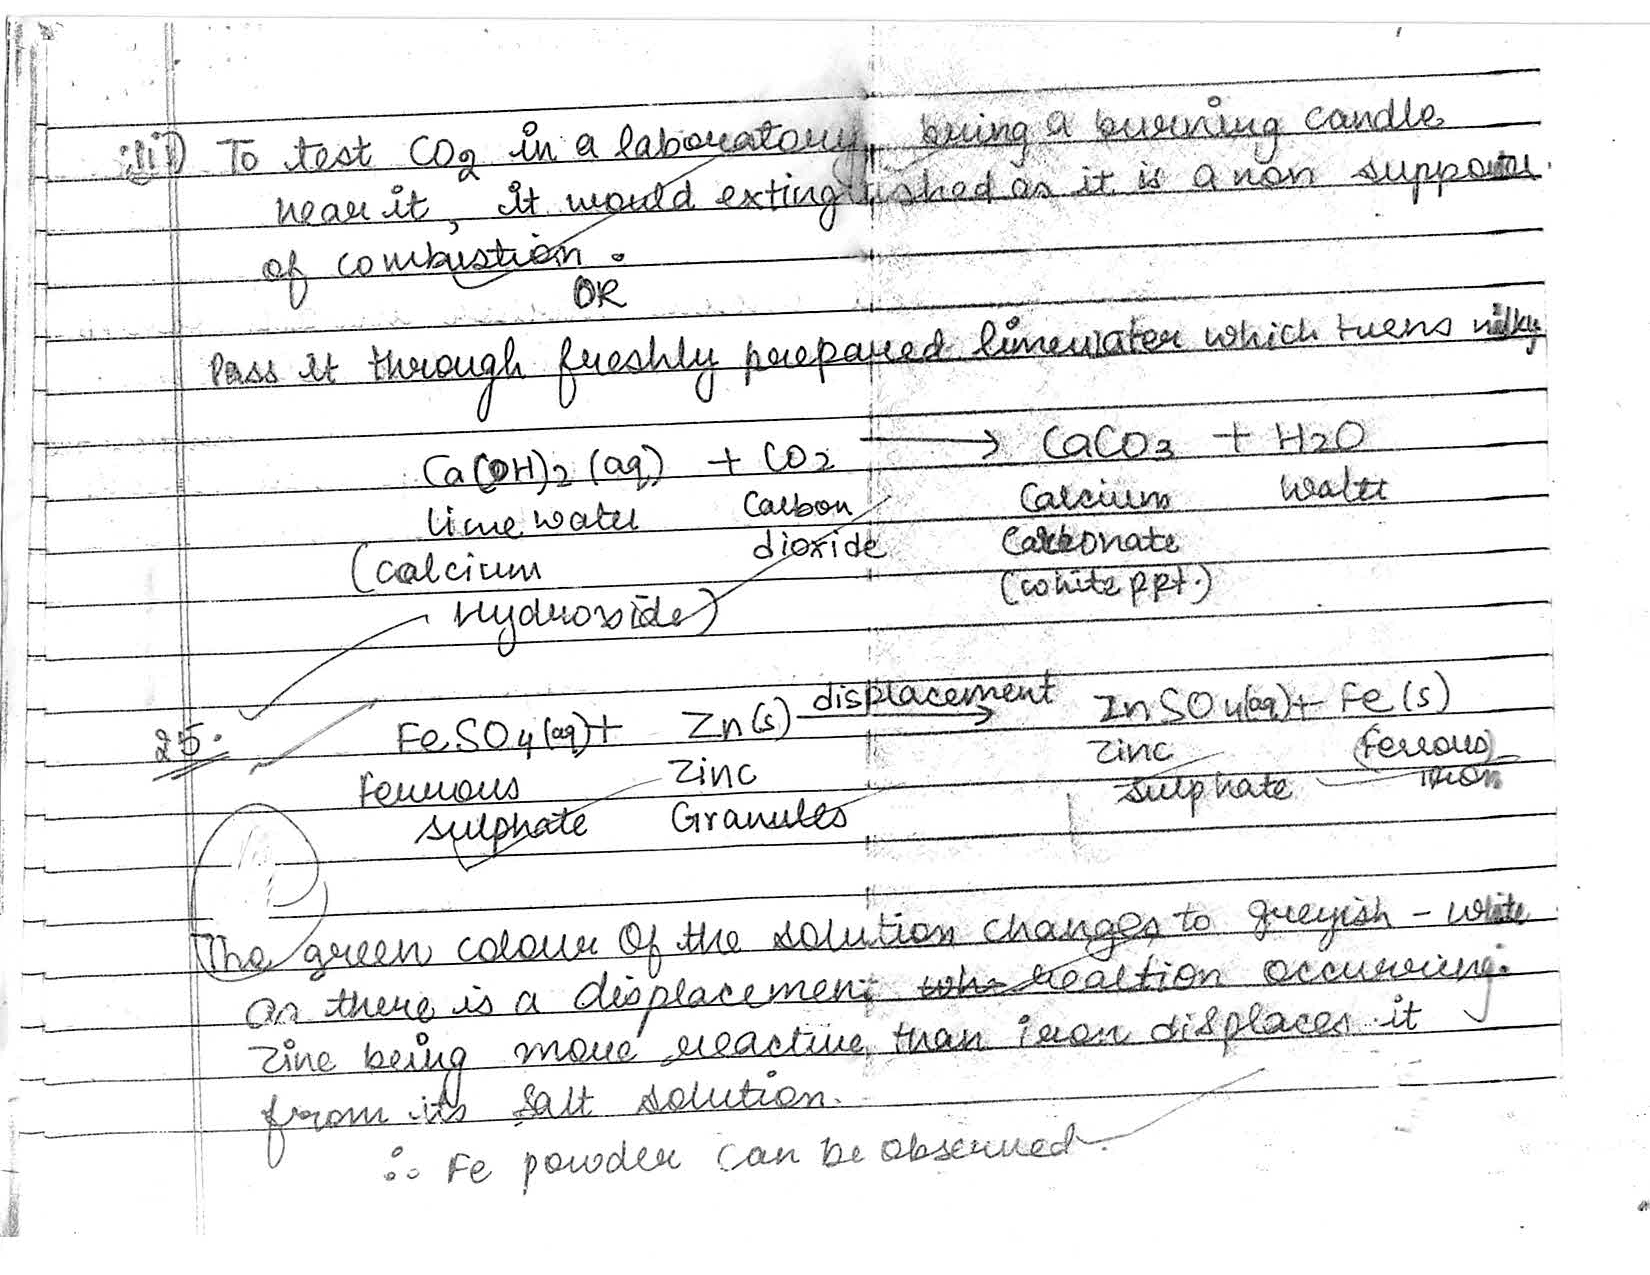 iii) To test CO2 in a laboratory, bring a burning candle
near it, it would extinguished as it is a non supporter
of combustion.
OR
Pass it through freshly prepared limewater which turns milky
Ca(OH)2 (aq) + CO2 → CaCO3 + H2O
lime water Carbon Calcium Water
(calcium dioxide Carbonate
Hydroxide) (white ppt.)
25. FeSO4(aq) + Zn(s) displacement → ZnSO4(aq) + Fe(s)
Ferrous Zinc Zinc (Ferrous)
sulphate Granules sulphate iron
The green colour Of the solution changes to greyish - white
as there is a displacement reaction occurring.
Zinc being more reactive than iron displaces it
from its salt solution.
∴ Fe powder can be observed